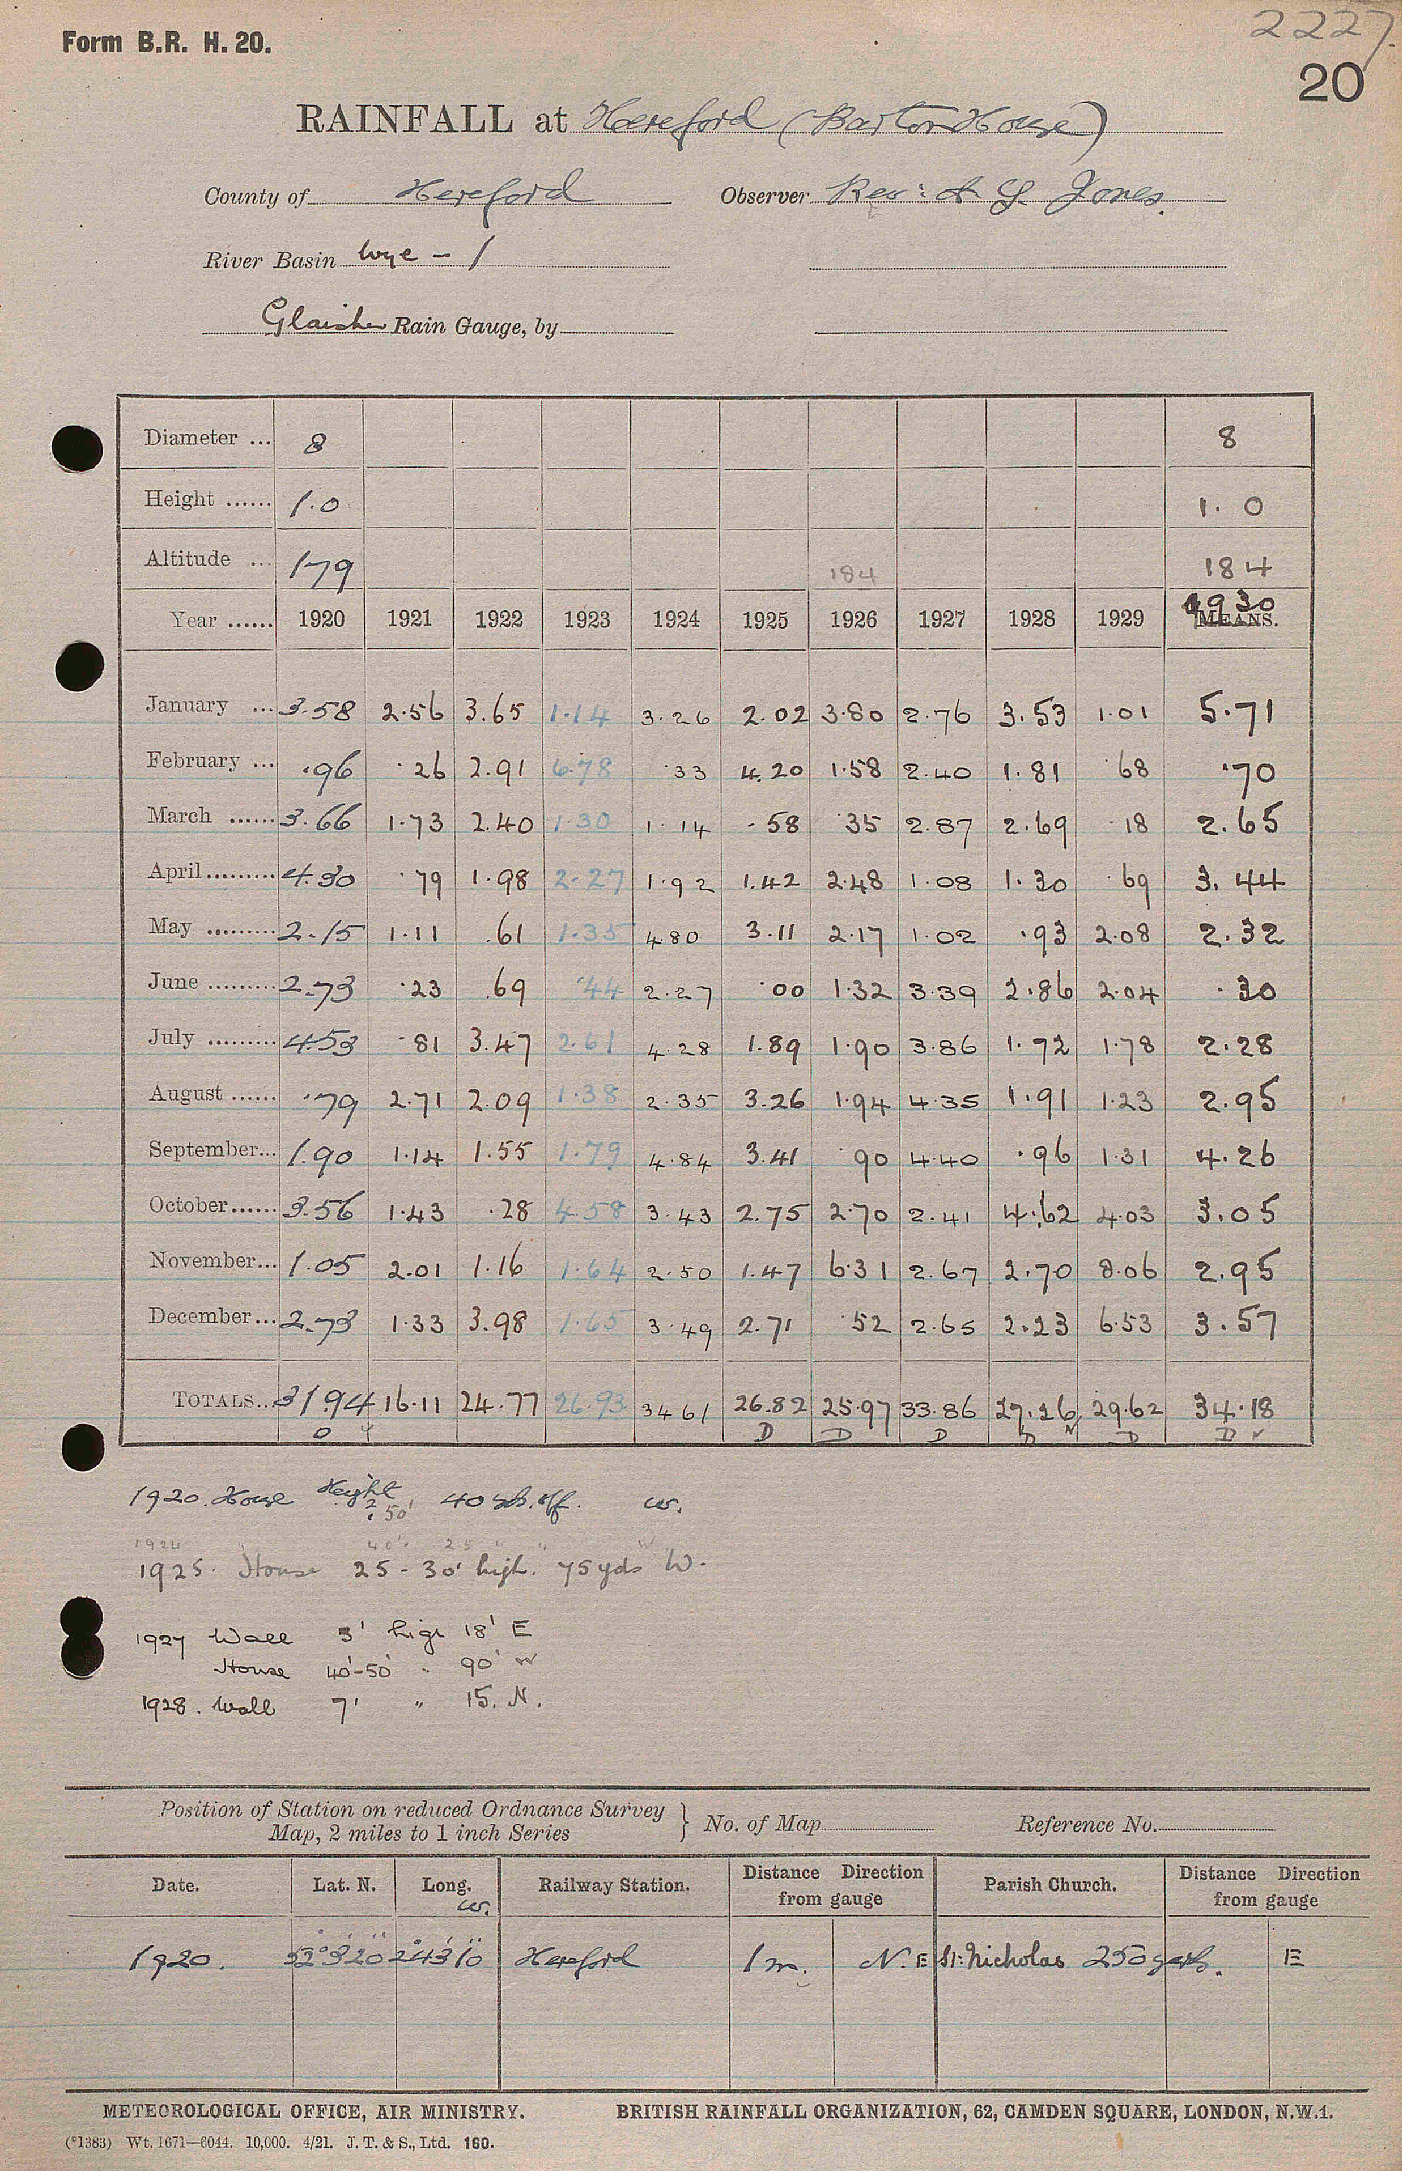 2227.
Form B.R. H. 20.
20
RAINFALL at Hereford (Barton House)
County of Hereford Observer Rev: A G Jones.
River Basin Wye - 1
Glaisher Rain Gauge, by
Diameter ... 8 8
Height ...... 1.0 1.0
Altitude ... 179 184 184
Year ...... 1920 1921 1922 1923 1924 1925 1926 1927 1928 1929 1930 MEANS.
January ... 3.58 2.56 3.65 1.14 3.26 2.02 3.80 2.76 3.53 1.01 5.71
February ... .96 .26 2.91 6.78 .33 4.20 1.58 2.40 1.81 .68 .70
March ...... 3.66 1.73 2.40 1.30 1.14 .58 .35 2.87 2.69 .18 2.65
April ......... 4.30 .79 1.98 2.27 1.92 1.42 2.48 1.08 1.30 .69 3.44
May ......... 2.15 1.11 .61 1.35 4.80 3.11 2.17 1.02 .93 2.08 2.32
June ......... 2.73 .23 .69 .44 2.27 .00 1.32 3.39 2.86 2.04 .30
July ......... 4.53 .81 3.47 2.61 4.28 1.89 1.90 3.86 1.72 1.78 2.28
August ...... .79 2.71 2.09 1.38 2.35 3.26 1.94 4.35 1.91 1.23 2.95
September... 1.90 1.14 1.55 1.79 4.84 3.41 .90 4.40 .96 1.31 4.26
October ...... 3.56 1.43 .28 4.58 3.43 2.75 2.70 2.41 4.62 4.03 3.05
November... 1.05 2.01 1.16 1.64 2.50 1.47 6.31 2.67 2.70 8.06 2.95
December... 2.73 1.33 3.98 1.65 3.49 2.71 .52 2.65 2.23 6.53 3.57
TOTALS... 31.94 16.11 24.77 26.93 34.61 26.82 25.97 33.86 27.26 29.62 34.18
D D D D D D
1920. House Height ? 50' 40 yds. off. W.
1924 " 40' " 25 " " W
1925. House 25 - 30' high. 75 yds W.
1927 Wall 5' high 18' E
House 40'-50' " 90' W
1928. Wall 7' " 15. N.
Position of Station on reduced Ordnance Survey Map, 2 miles to 1 inch Series } No. of Map Reference No.
Date. Lat. N. Long. W. Railway Station. Distance Direction from gauge Parish Church. Distance Direction from gauge
1920. 52° 3' 20" 2° 43' 10" Hereford 1 m. N. E St. Nicholas 250 yards. E
METEOROLOGICAL OFFICE, AIR MINISTRY. BRITISH RAINFALL ORGANIZATION, 62, CAMDEN SQUARE, LONDON, N.W.1.
(*1383) Wt. 1671—6044. 10,000. 4/21. J. T. & S., Ltd. 160.